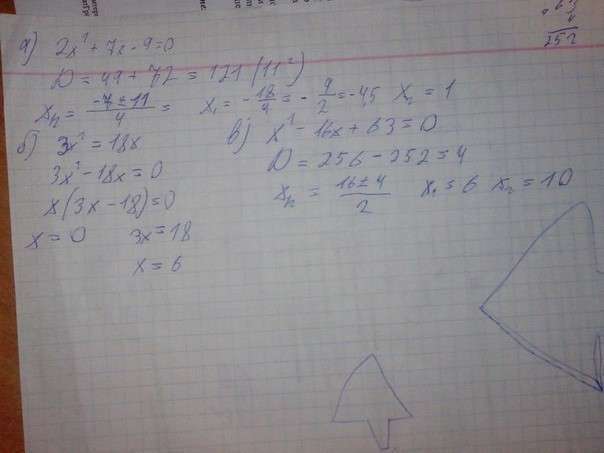 а) 2x² + 7x - 9 = 0
D = 49 + 72 = 121 (11²)
x₁,₂ = -7 ± 11 / 4 = x₁ = - 18/4 = - 9/2 = -4,5 x₂ = 1
б) 3x² = 18x
3x² - 18x = 0
x(3x - 18) = 0
x = 0 3x = 18
x = 6
в) x² - 16x + 63 = 0
D = 256 - 252 = 4
x₁,₂ = 16 ± 4 / 2 x₁ = 6 x₂ = 10
252